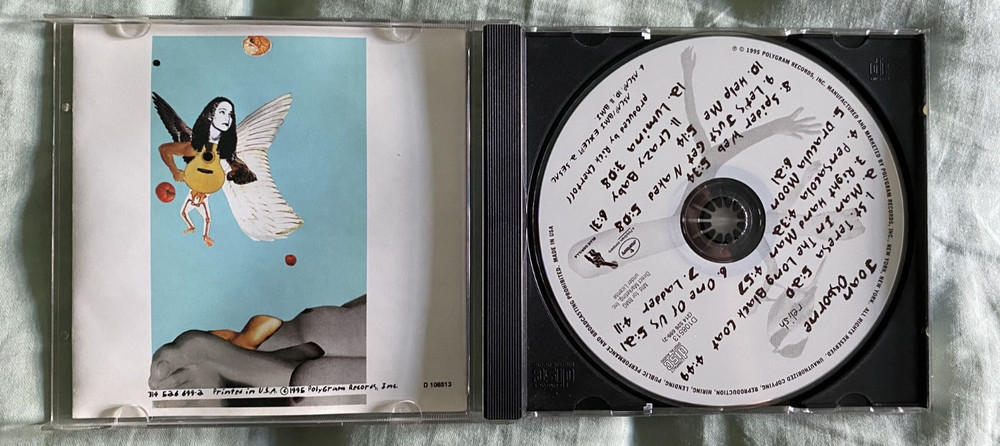 314 526 699-2 Printed in U.S.A. ©1995 PolyGram Records, Inc.
D 108513
℗ © 1995 POLYGRAM RECORDS, INC. MANUFACTURED AND MARKETED BY POLYGRAM RECORDS, INC., NEW YORK, NEW YORK. ALL RIGHTS RESERVED. UNAUTHORIZED COPYING, REPRODUCTION, HIRING, LENDING, PUBLIC PERFORMANCE AND BROADCASTING PROHIBITED. MADE IN USA
Joan Osborne
Relish
1. St. Teresa 5:20
2. Man In The Long Black Coat 4:49
3. Right Hand Man 4:57
4. Pensacola 4:32
5. Dracula Moon 6:21
6. One Of Us 5:21
7. Ladder 4:11
8. Spider Web 5:35
9. Let's Just Get Naked 5:08
10. Help Me 5:14
11. Crazy Baby 6:31
12. Lumina 3:08
produced by Rick Chertoff
D108513
(314 526 699-2)
Mfd. for BMG
Direct Marketing, Inc.
under License